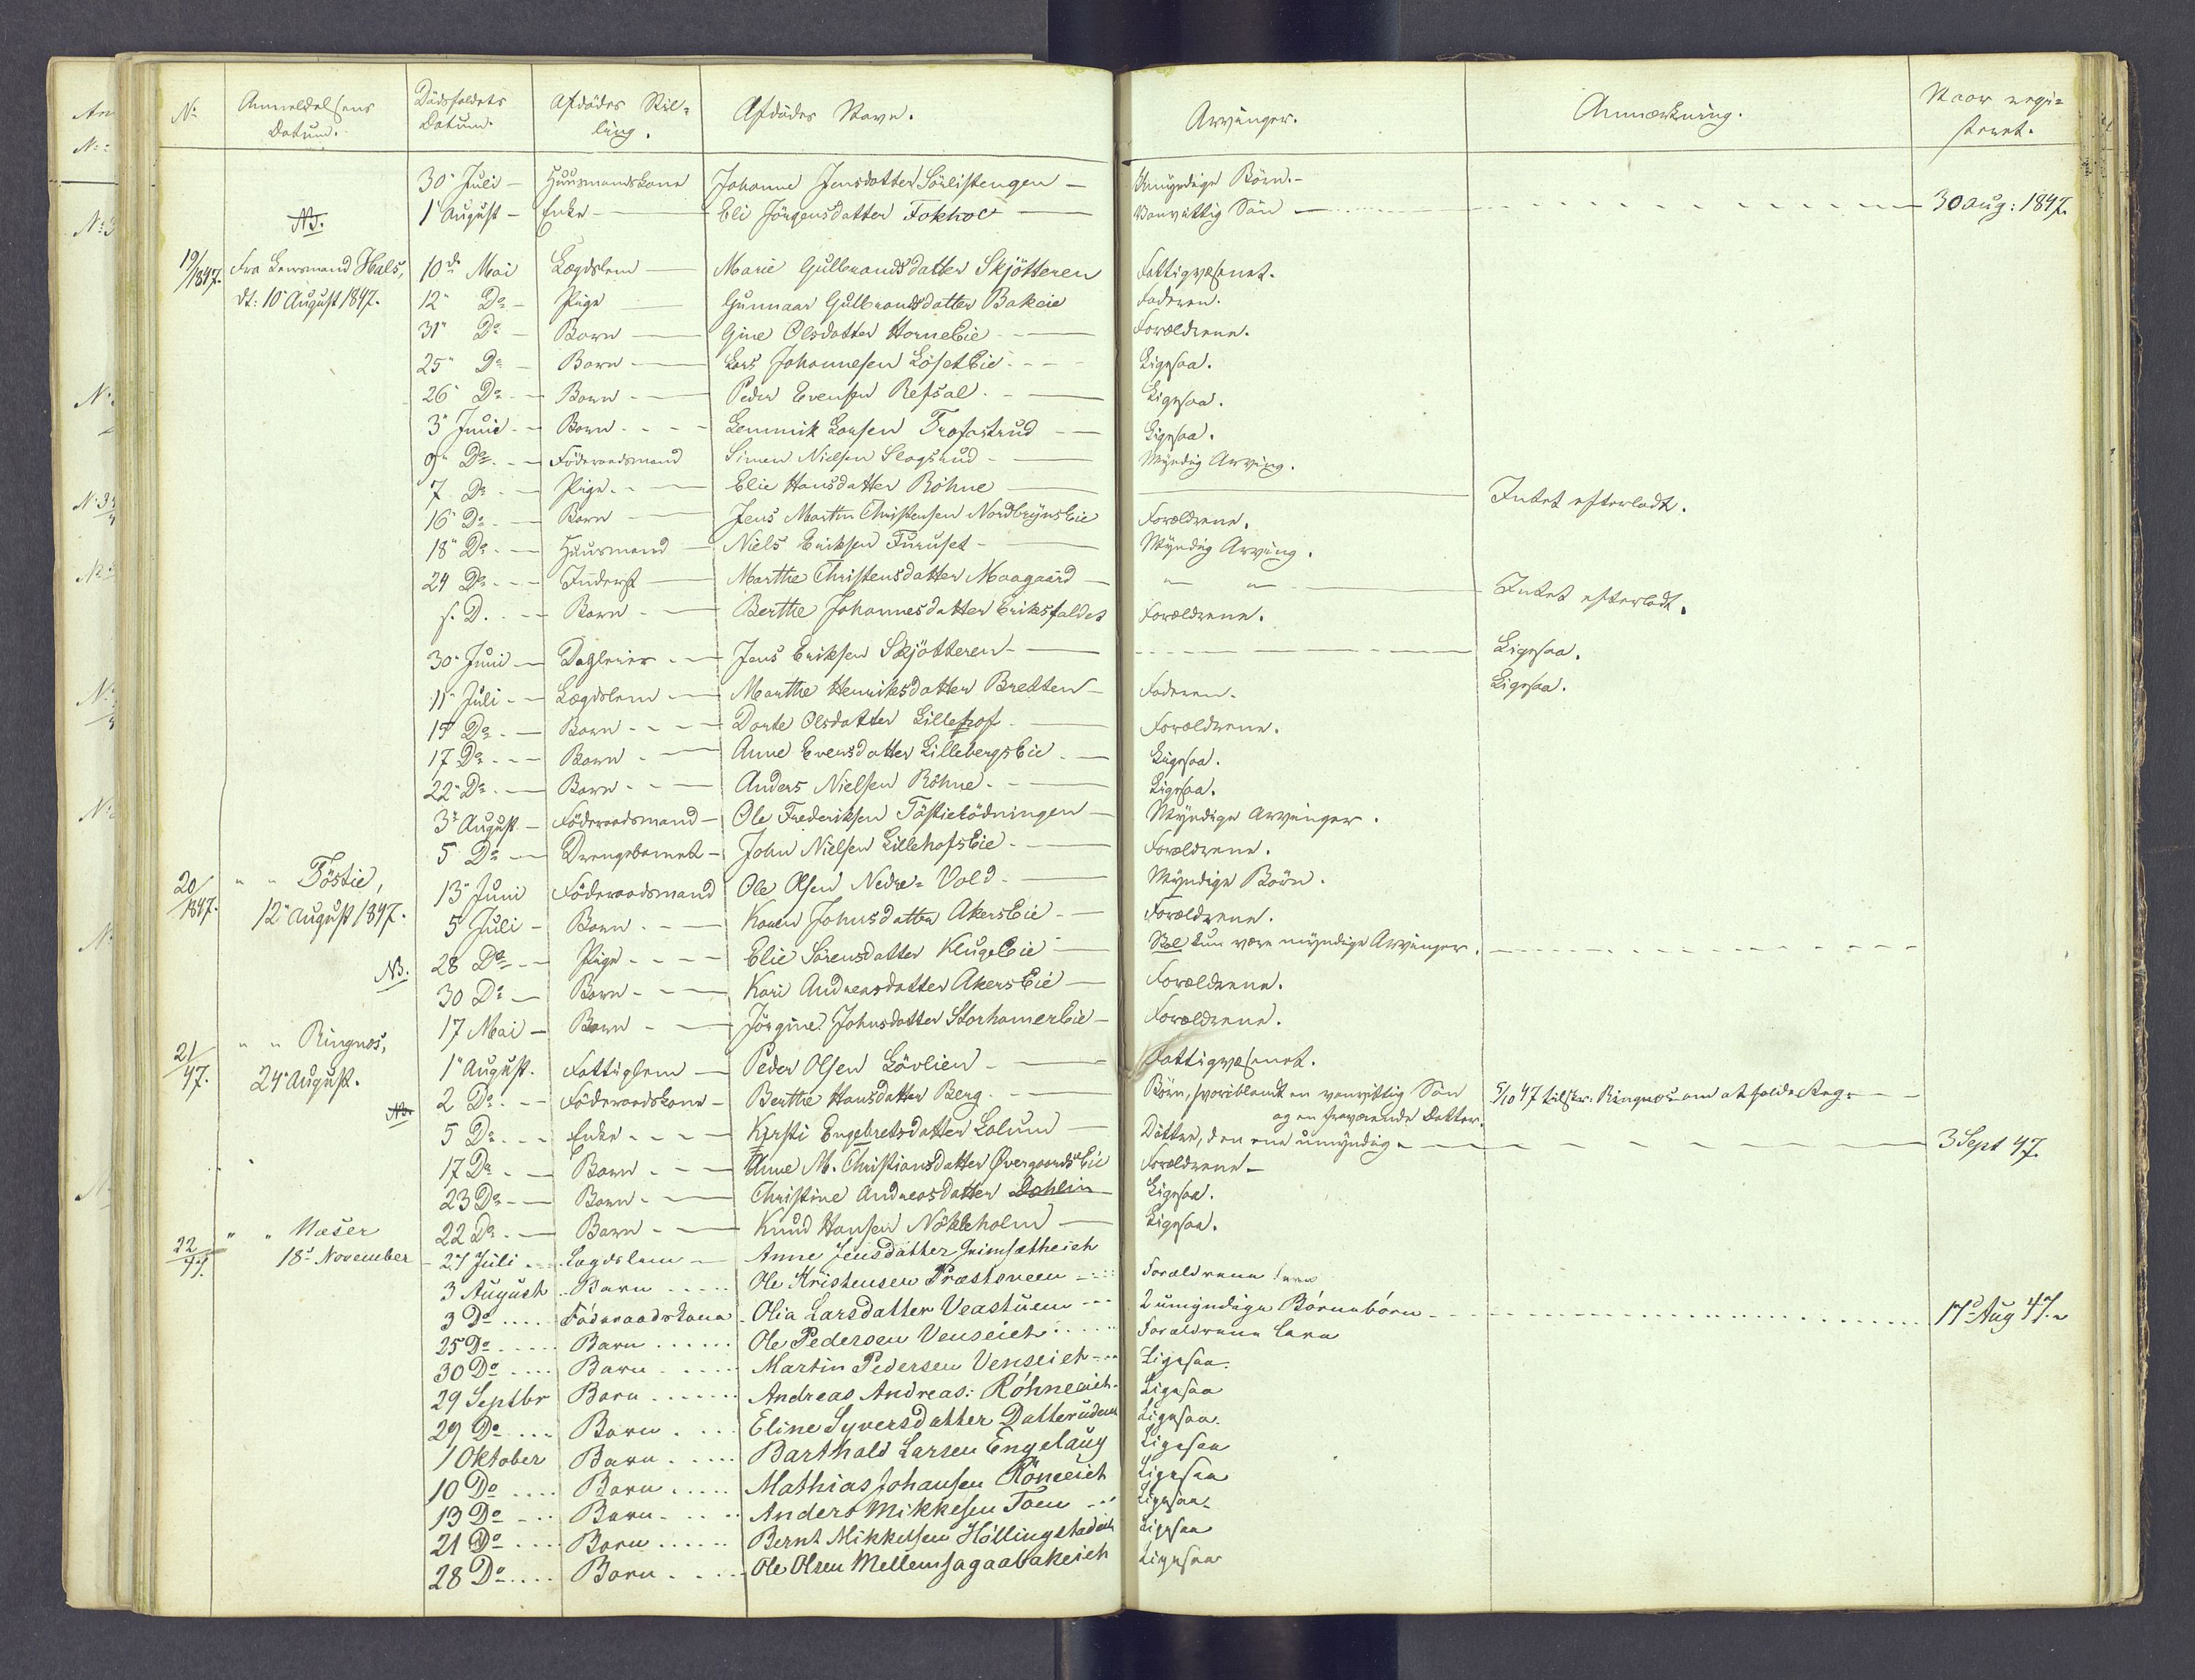 No Anmeldelsens Datum. Dödsfaldets Datum. Afdödes Stilling. Afdödes Navn. Arvinger. Anmærkning. Naar registeret.
30" Juli - Huusmandskone Johanne Jensdatter Sörlistengen - Umyndige Börn. -
NB. 1" August - Enke - Eli Jörgensdatter Fokhol - Vanvittig Sön - 30 Aug: 1847.
19/1847. Fra Lensmand Hals, 10de Mai Lægdslem - Marie Gulbrandsdatter Skjötteren Fattigvæsenet.
dt: 10" August 1847. 12" Do - Pige - Gunnaar Gulbrandsdatter Bakeie Faderen.
31" Do - Barn - Gine Olsdatter HorneEie - Forældrene.
25" Do - Barn - Lars Johannesen LösetEie - Ligesaa.
26" Do - Barn - Peder Evensen Refsal - Ligesaa.
3" Juni - Barn - Lemmik Larsen Trofastrud - Ligesaa.
9" Do - Föderaadsmand Simen Nielsen Slagsrud - Myndig Arving.
7 Do - Pige - Elie Hansdatter Röhne - Intet efterladt.
16" Do - Barn - Jens Martin Christensen NordbrynsEie Forældrene.
18" Do - Huusmand - Niels Eriksen Furuset - Myndig Arving.
24 Do - Inderst - Marthe Christensdatter Maagaard - " " - Intet efterladt.
s. D. - Barn - Berthe Johannesdatter Eriksfaldet Forældrene.
30" Juni - Dagleier - Jens Eriksen Skjötteren - Ligesaa.
11" Juli - Lægdslem - Marthe Henriksdatter Bretten - Faderen. Ligesaa.
15 Do - Barn - Dorte Olsdatter Lillehof - Forældrene.
17 Do - Barn - Anne Evensdatter LillebergsEie - Ligesaa.
22" Do - Barn - Anders Nielsen Röhne - Ligesaa.
3" August - Föderaadsmand - Ole Frederiksen Töstierödningen - Myndige Arvinger.
5 Do - Drengebarnet - John Nielsen LillehofsEie - Forældrene.
20/1847. " " Töstie, 13" Juni Föderaadsmand Ole Olsen Nedre=Vold - Myndige Börn.
12" August 1847. 5 Juli - Barn - Karen Johnsdatter AkersEie - Forældrene.
NB. 28 Do - Pige - Elie Sörensdatter KlugeEie - Skal kun være myndige Arvinger. -
30 Do - Barn - Kari Andreasdatter AkersEie - Forældrene.
17 Mai - Barn - Jörgine Johnsdatter StorhamerEie - Forældrene.
21/47. " " Ringnes, 1" August. Fattiglem - Peder Olsen Lövlien - Fattigvæsenet.
24" August. 2 Do - Föderaadskone - Berthe Hansdatter Berg - Börn, hvoriblandt en vanvittig Sön 5/10 47 tilskr: Ringnes om at holde Reg. -
og en fraværende Datter.
NB. 5 Do - Enke - Kirsti Engebretsdatter Lolum - Döttre, den ene umyndig - 3 Sept 47.
17 Do - Barn - Anne M. Christiansdatter ØvergaardsEie Forældrene -
23 Do - Barn - Christine Andreasdatter Dahlin Ligesaa.
22 Do - Barn - Knud Hansen Nökleholm - Ligesaa.
22/47. " " Næser 27 Juli - Lægdslem - Anne Jensdatter Grimsætheich
18d November 3 August - Barn - Ole Kristensen Præstsveen - Forældrene
3 Do - Föderaadskone - Olia Larsdatter Veastuen - 2 umyndige Börnebörn - 17d Aug 47.
25 Do - Barn - Ole Pedersen Venseich - Forældrene
30 Do - Barn - Martin Pedersen Venseich - Ligesaa.
29 Septbr Barn - Andreas Andreas: Röhneeich - Ligesaa
29 Do - Barn - Eline Syversdatter Datteruden Ligesaa.
1 Oktober Barn - Barthold Larsen Engelaug Ligesaa
10 Do - Barn - Mathias Johansen Röneeich Ligesaa
13 Do - Barn - Anders Mikkelsen Toen - Ligesaa.
21 Do - Barn - Bernt Mikkelsen Höllingstadeich Ligesaa
28 Do - Barn - Ole Olsen Mellemsagaabakeich Ligesaa